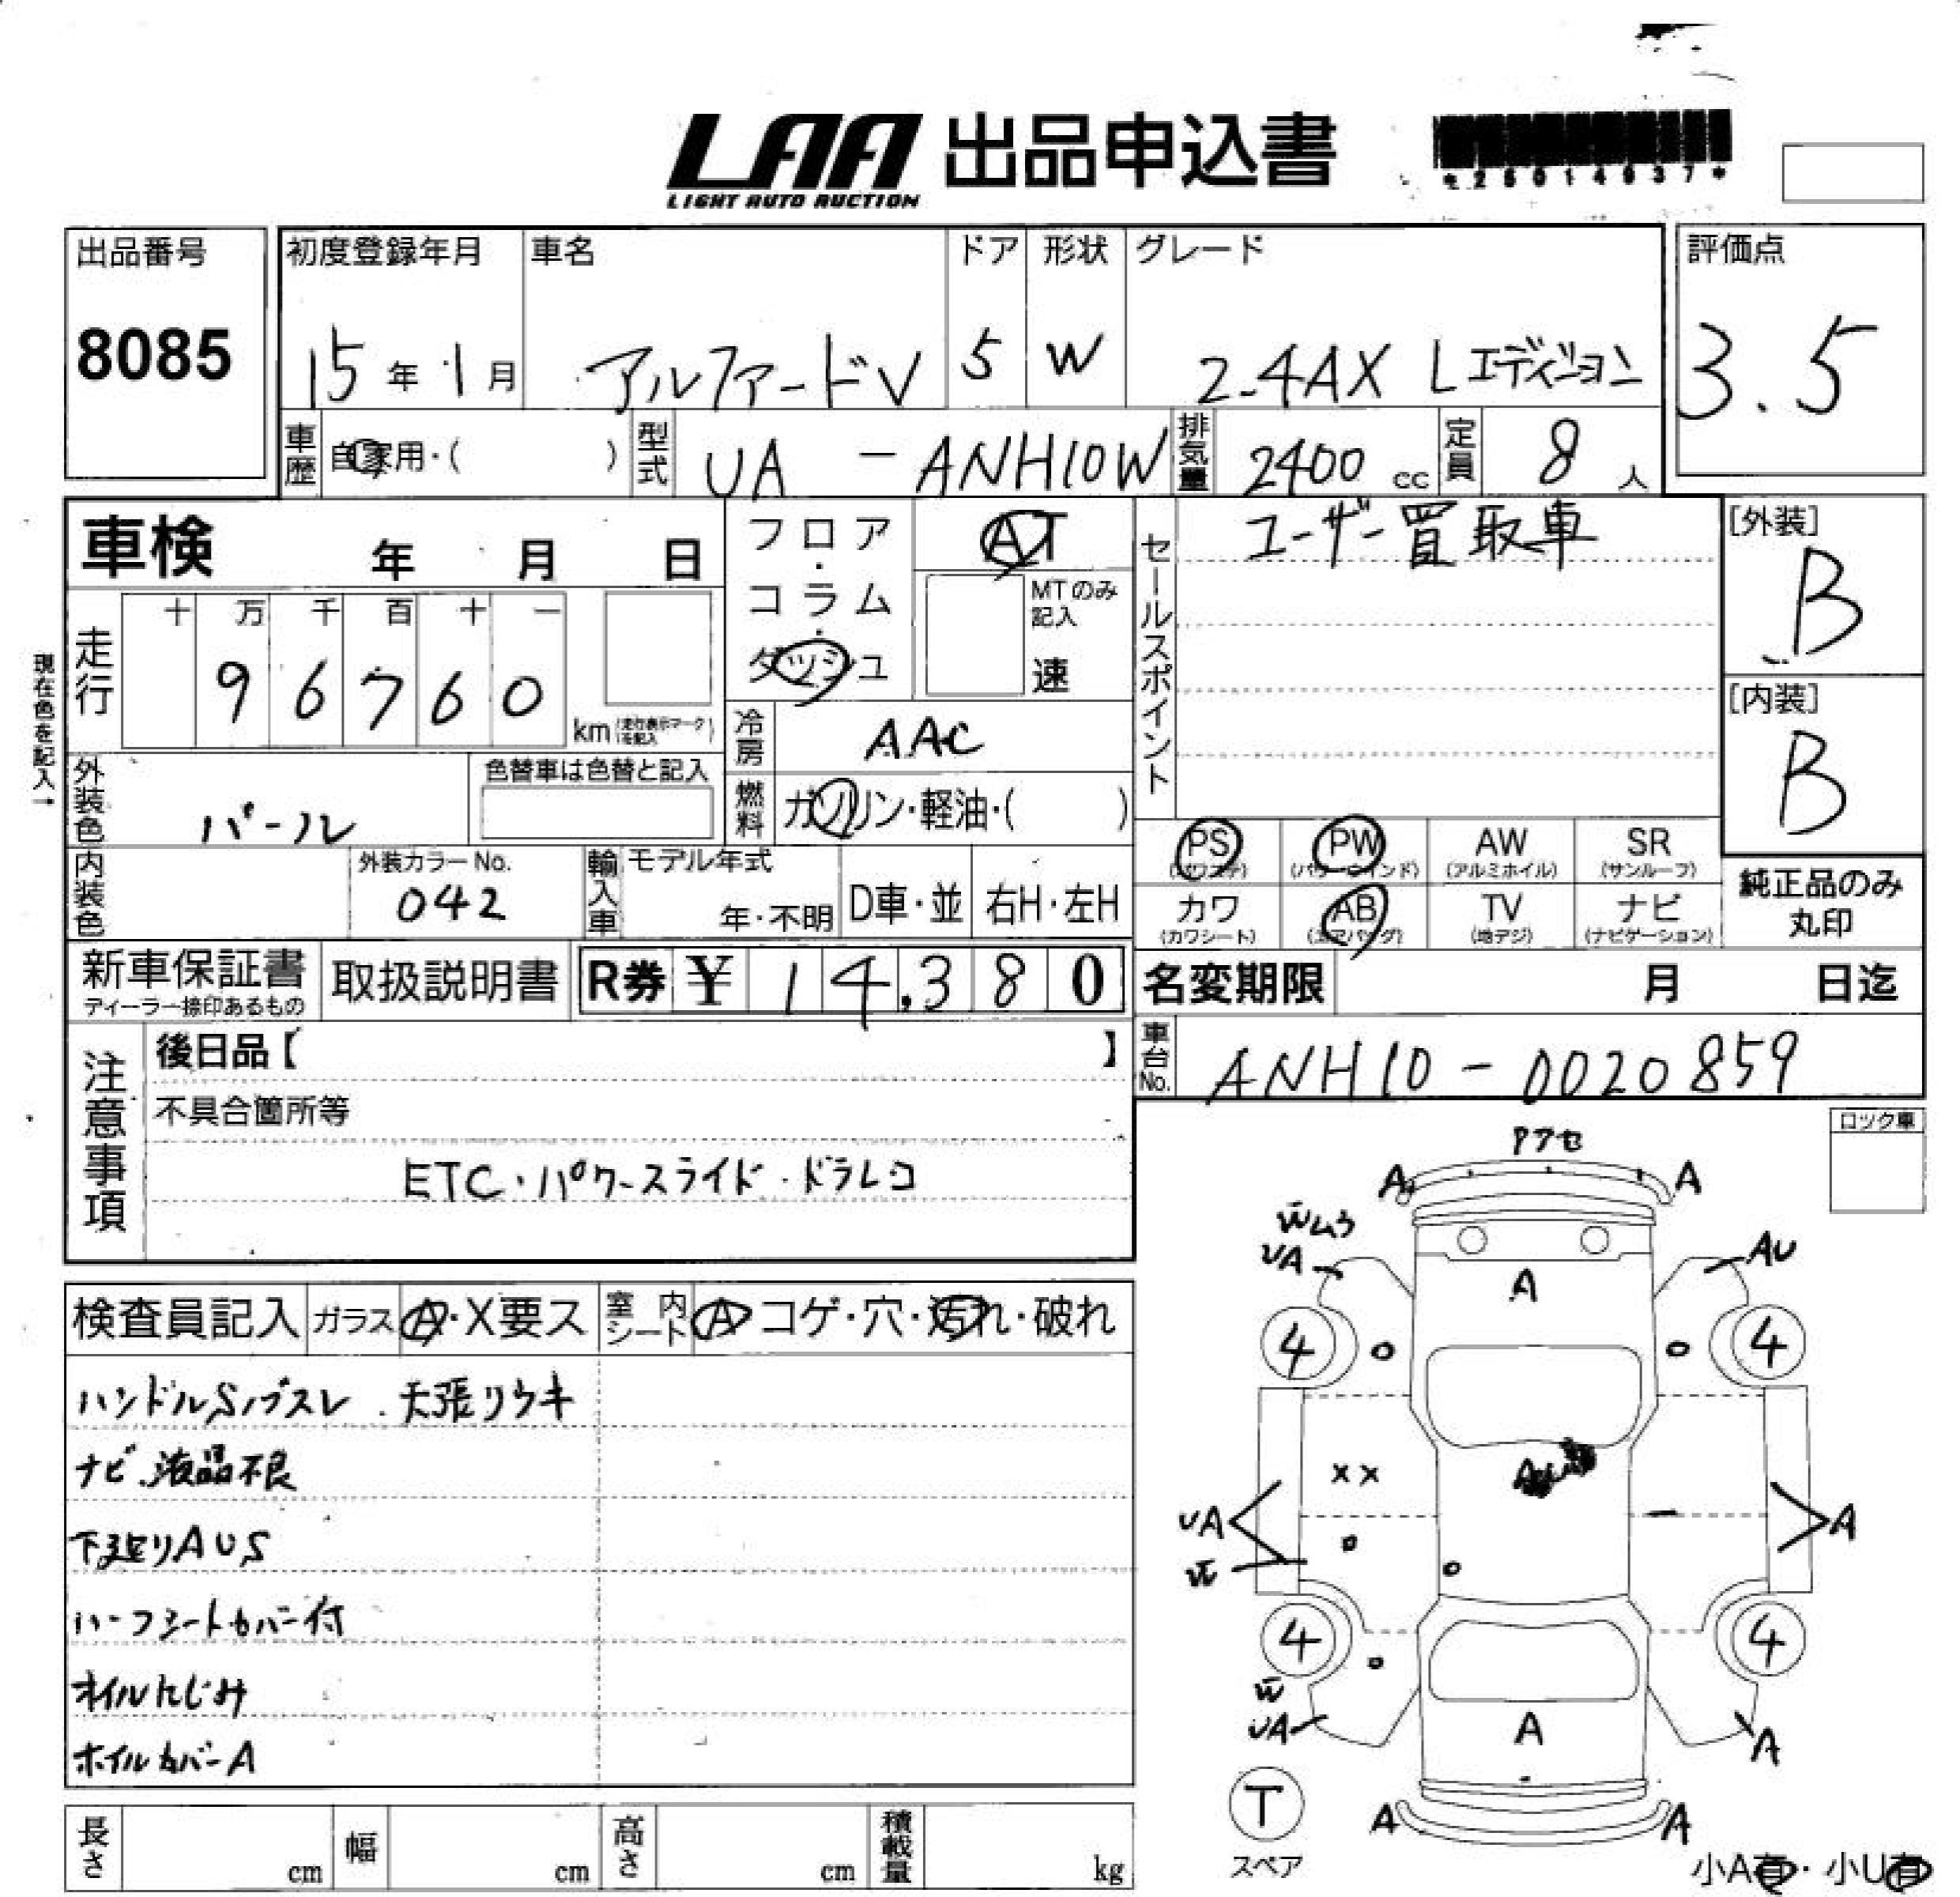 LAA 出品申込書
LIGHT AUTO AUCTION
出品番号
8085
初度登録年月
15年1月
車名
アルファードV
ドア
5
形状
W
グレード
2.4AX Lエディション
評価点
3.5
車歴
自家用・( )
型式
UA - ANH10W
排気量
2400 cc
定員
8 人
車検 年 月 日
フロア・コラム・ダッシュ
AT
MTのみ記入
速
セールスポイント
ユーザー買取車
[外装]
B
[内装]
B
現在色を記入→
走行
十 万 千 百 十 一
96760
km (走行表示マークを記入)
冷房
AAC
燃料
ガソリン・軽油・( )
外装色
パール
色替車は色替と記入
内装色
外装カラーNo.
042
輸入車
モデル年式
年・不明
D車・並
右H・左H
PS
(パワステ)
PW
(パワーウインド)
AW
(アルミホイル)
SR
(サンルーフ)
カワ
(カワシート)
AB
(エアバッグ)
TV
(地デジ)
ナビ
(ナビゲーション)
純正品のみ
丸印
新車保証書
ディーラー捺印あるもの
取扱説明書
R券 ¥ 14,380
名変期限 月 日迄
車台No.
ANH10-0020859
注意事項
後日品【 】
不具合箇所等
ETC・パワースライド・ドラレコ
ロック車
検査員記入
ガラス
A・X要ス
室内シート
A コゲ・穴・汚れ・破れ
ハンドルSノブスレ．天張リウキ
ナビ．液晶不良
下廻りAUS
ハーフシートカバー付
オイルにじみ
ホイルカバーA
Pアセ
A A
Wムラ
UA
AU
A
4 4
XX
UA A
W
4 4
W
UA
A
A
T
スペア
A A
小A有・小U有
長さ cm
幅 cm
高さ cm
積載量 kg